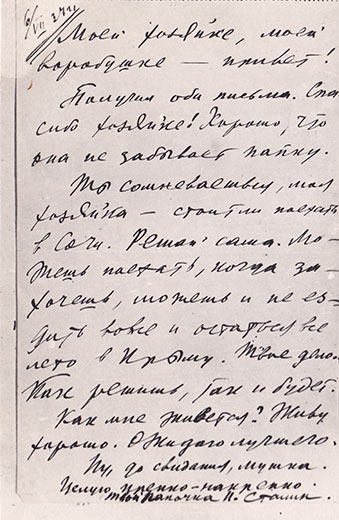 6/VII 37 г.
Моей хозяйке, моей
воробушке — привет!
Получил оба письма. Спа
сибо хозяйке! Хорошо, что
она не забывает папку.
Ты сомневаешься, моя
хозяйка — стоит ли поехать
в Сочи. Решай сама. Мо-
жешь поехать, когда за-
хочешь, можешь и не ез-
дить вовсе и остаться все
лето в Крыму. Твое дело.
Как решишь, так и будет.
Как мне живется? Живу
хорошо. Ожидаю лучшего.
Ну, до свидания, мушка.
Целую крепко-накрепко.
Твой папочка И. Сталин.